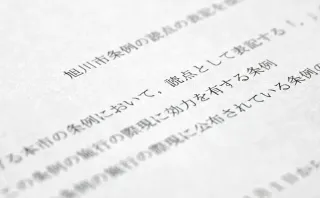 旭川市条例の読点の表記を
る本市の条例において,読点として表記する「,」
の条例の施行の際現に効力を有する条例
条例の施行の際現に公布されている条例の
月1日から